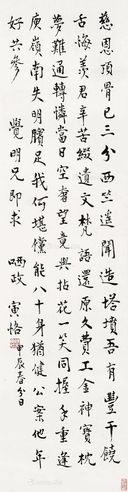 慈恩頂骨已三分西竺遙聞造塔墳吾有豐干饒
舌悔羨君辛苦綴遺文梵語還原久費工金神寶枕
夢難通轉憐當日空奢望竟與拈花一笑同握手重逢
庾嶺南失明臏足我何堪儻能八十年猶健公案他年
好共參 覺明兄即求 哂政 寅恪 甲辰春分日